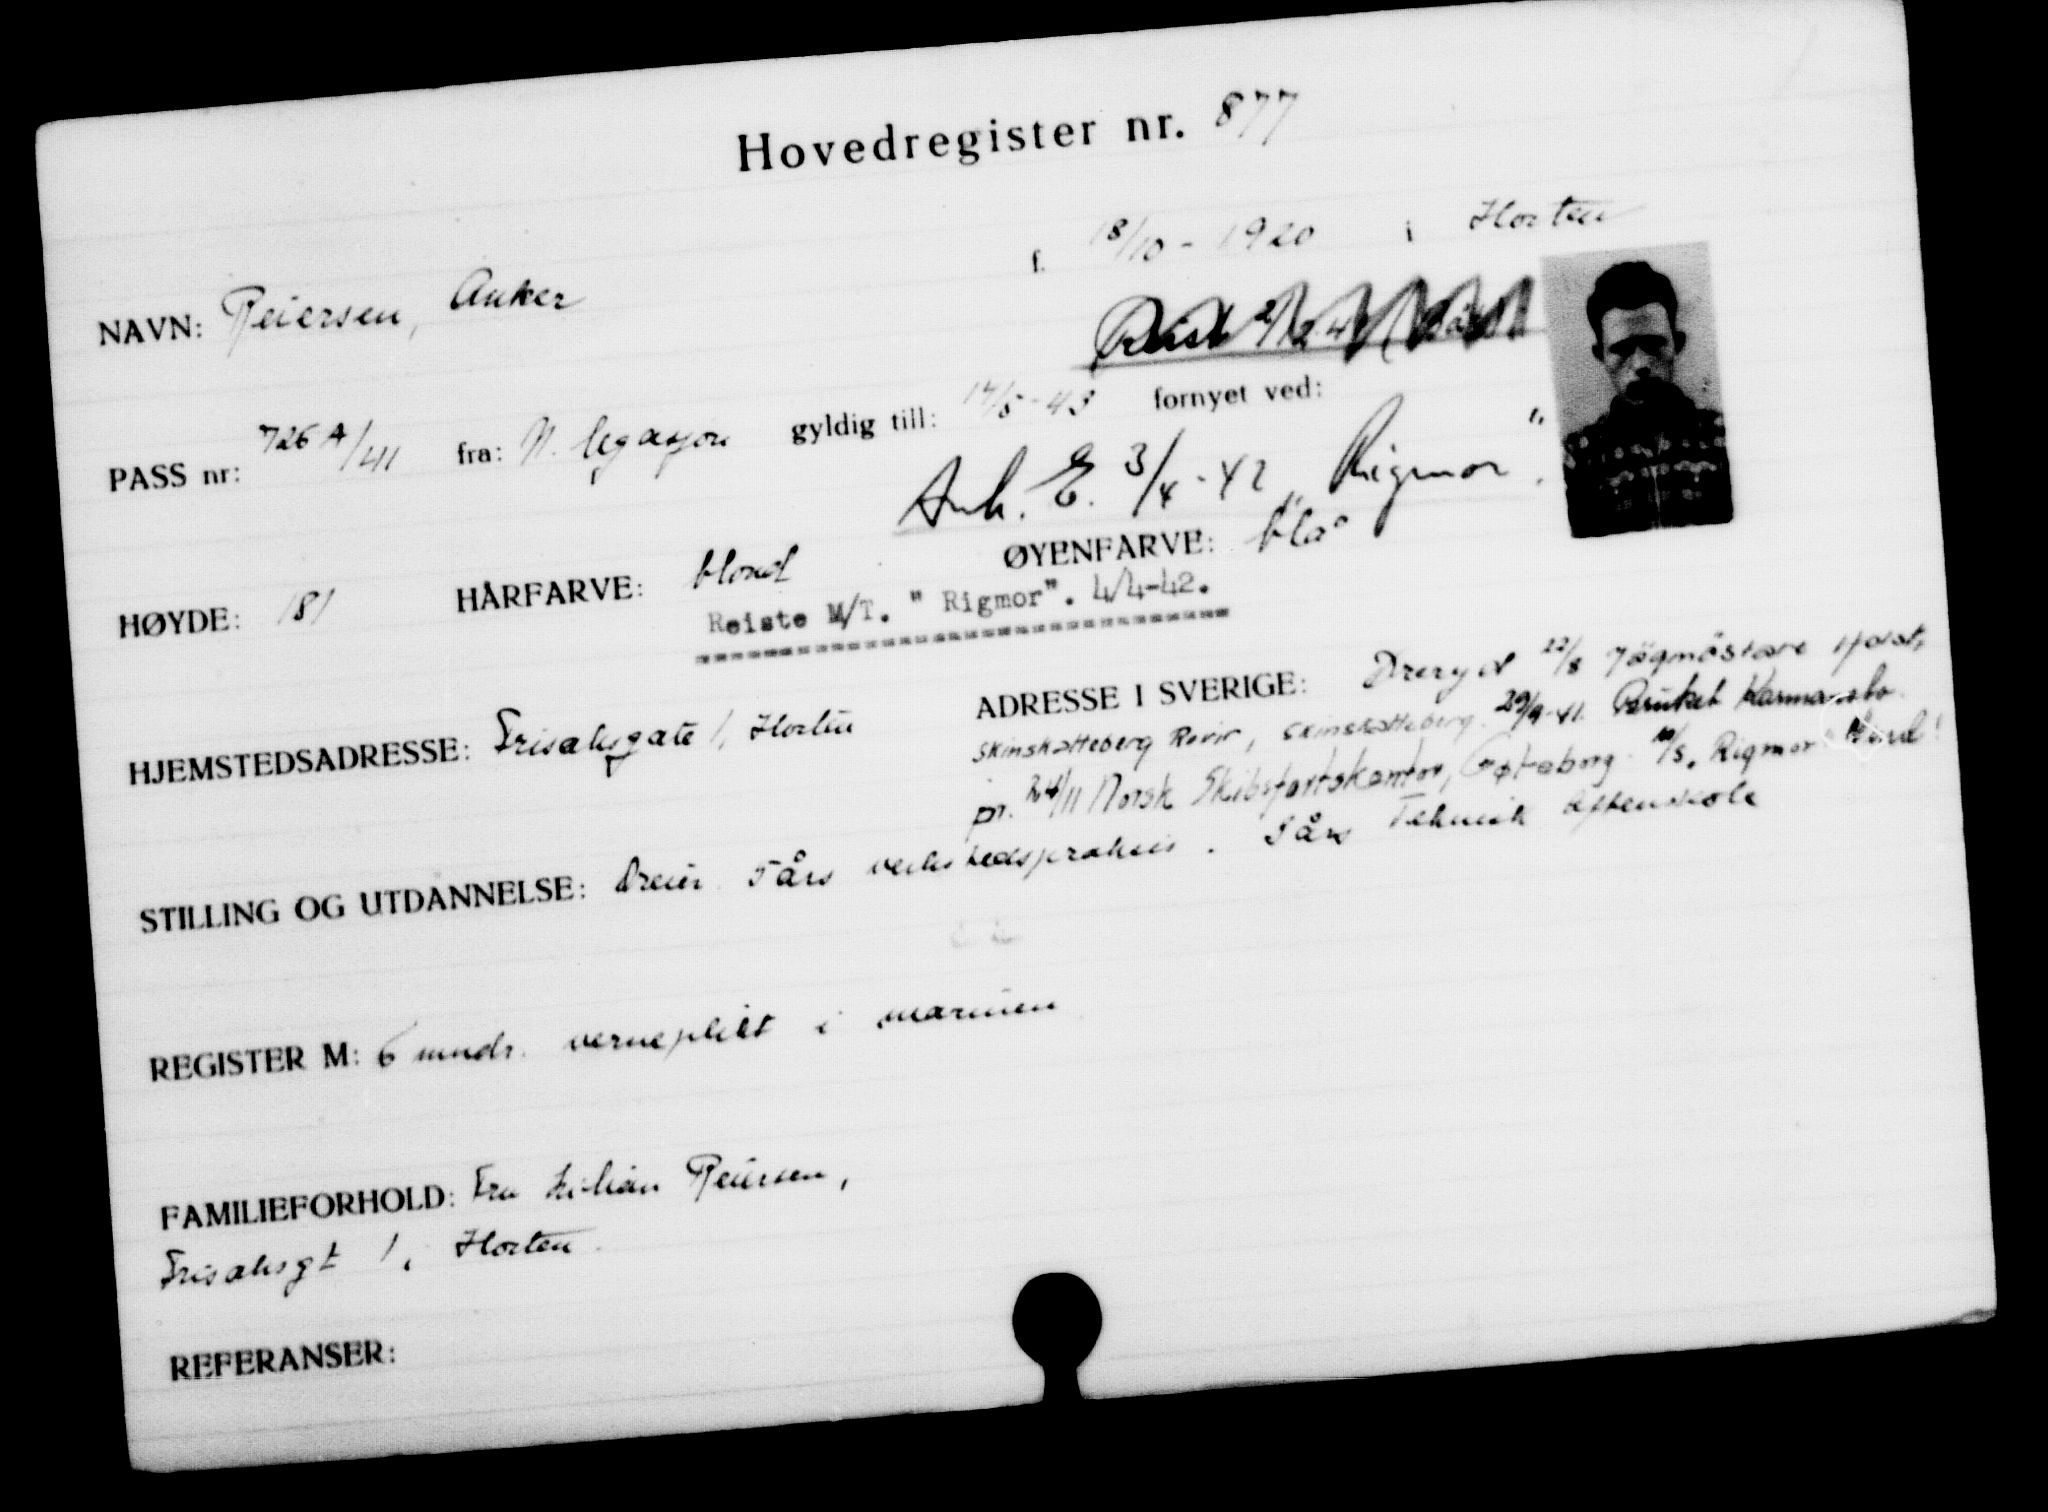 Hovedregister nr. 877
NAVN: Reiersen, Anker f. 18/10 - 1920 i Horten
Reist
PASS nr: 726 A/41 fra: N. legasjon gyldig till: 14/5-43 fornyet ved:
Ank. E. 3/4-42 „Rigmor".
HØYDE: 181 HÅRFARVE: blond ØYENFARVE: blå
Reiste M/T. " Rigmor". 4/4-42.
HJEMSTEDSADRESSE: Frisaksgate 1, Horten
ADRESSE I SVERIGE: Öreryd 22/8 Jägmästare
Skinskatteberg Revir, Skinskatteberg. 29/9-41. Bruket Karmansbo.
pr. 24/11 Norsk Skibsfartskontor, Gøteborg. Rigmor
STILLING OG UTDANNELSE: Dreier. 5 års verkstedspraksis. 3 års Teknisk Aftenskole
REGISTER M: 6 mndr. verneplikt i marinen
FAMILIEFORHOLD: Fru Lilian Reiersen,
Frisaksgt 1, Horten.
REFERANSER: